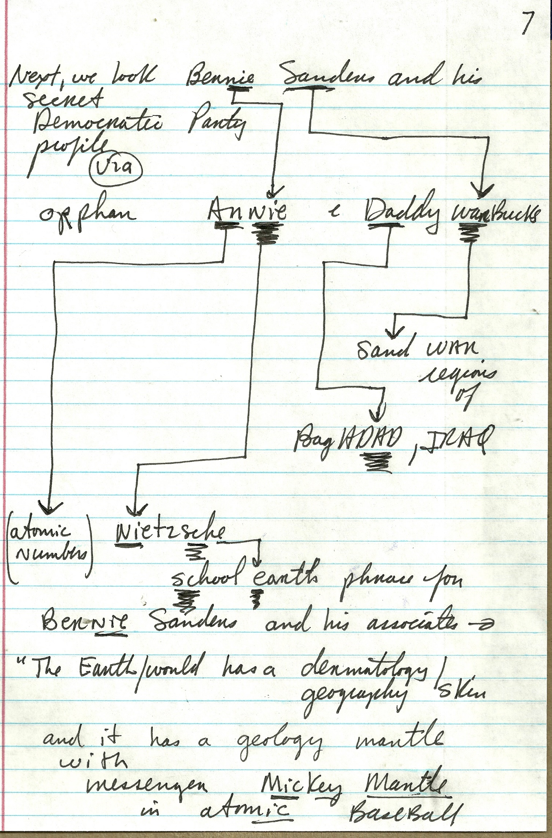 7
Next, we look Bennie Sanders and his
secret
Democratic Party
profile
via
orphan Annie e Daddy WarBucks
Sand WAR
regions
of
BagHDAD, IRAQ
(atomic
numbers)
Nietzsche
school earth phrase for
Bennie Sanders and his associates →
"The Earth/world has a dermatology/
geography skin
and it has a geology mantle
with
messenger Mickey Mantle
in atomic BaseBall